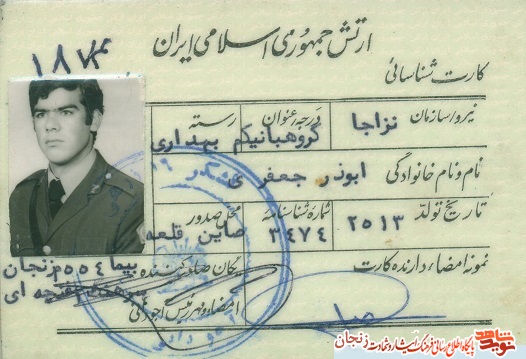 ارتش جمهوری اسلامی ایران
کارت شناسائی
نیرو/سازمان نزاجا درجه/عنوان گروهبانیکم رسته بهداری
نام و نام خانوادگی ابوذر جعفری
تاریخ تولد ۲۵۱۳ شماره شناسنامه ۳۴۷۴ محل صدور صاین قلعه
نمونه امضاء دارنده کارت یگان صادر کننده زنجان
امضاء و مهر رئیس
پایگاه اطلاع رسانی فرهنگ ایثار و شهادت زنجان
نوید شاهد